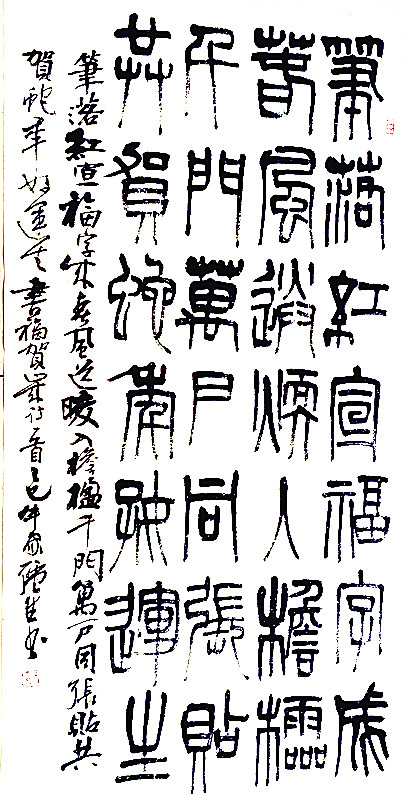 筆落紅宣福字成
春風送煗入檐楹
千門萬戶同張貼
共賀蛇年好運生
筆落紅宣福字成春風送暖入檐楹千門萬戶同張貼共
賀蛇年好運生書福賀歲詩一首乙巳年